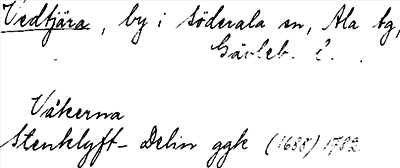 Vedtjära, by i Söderala sn, Ala tg,
Gävleb. l.
Våkerna
Stenklyft- Delin ggk (1688) 1782.